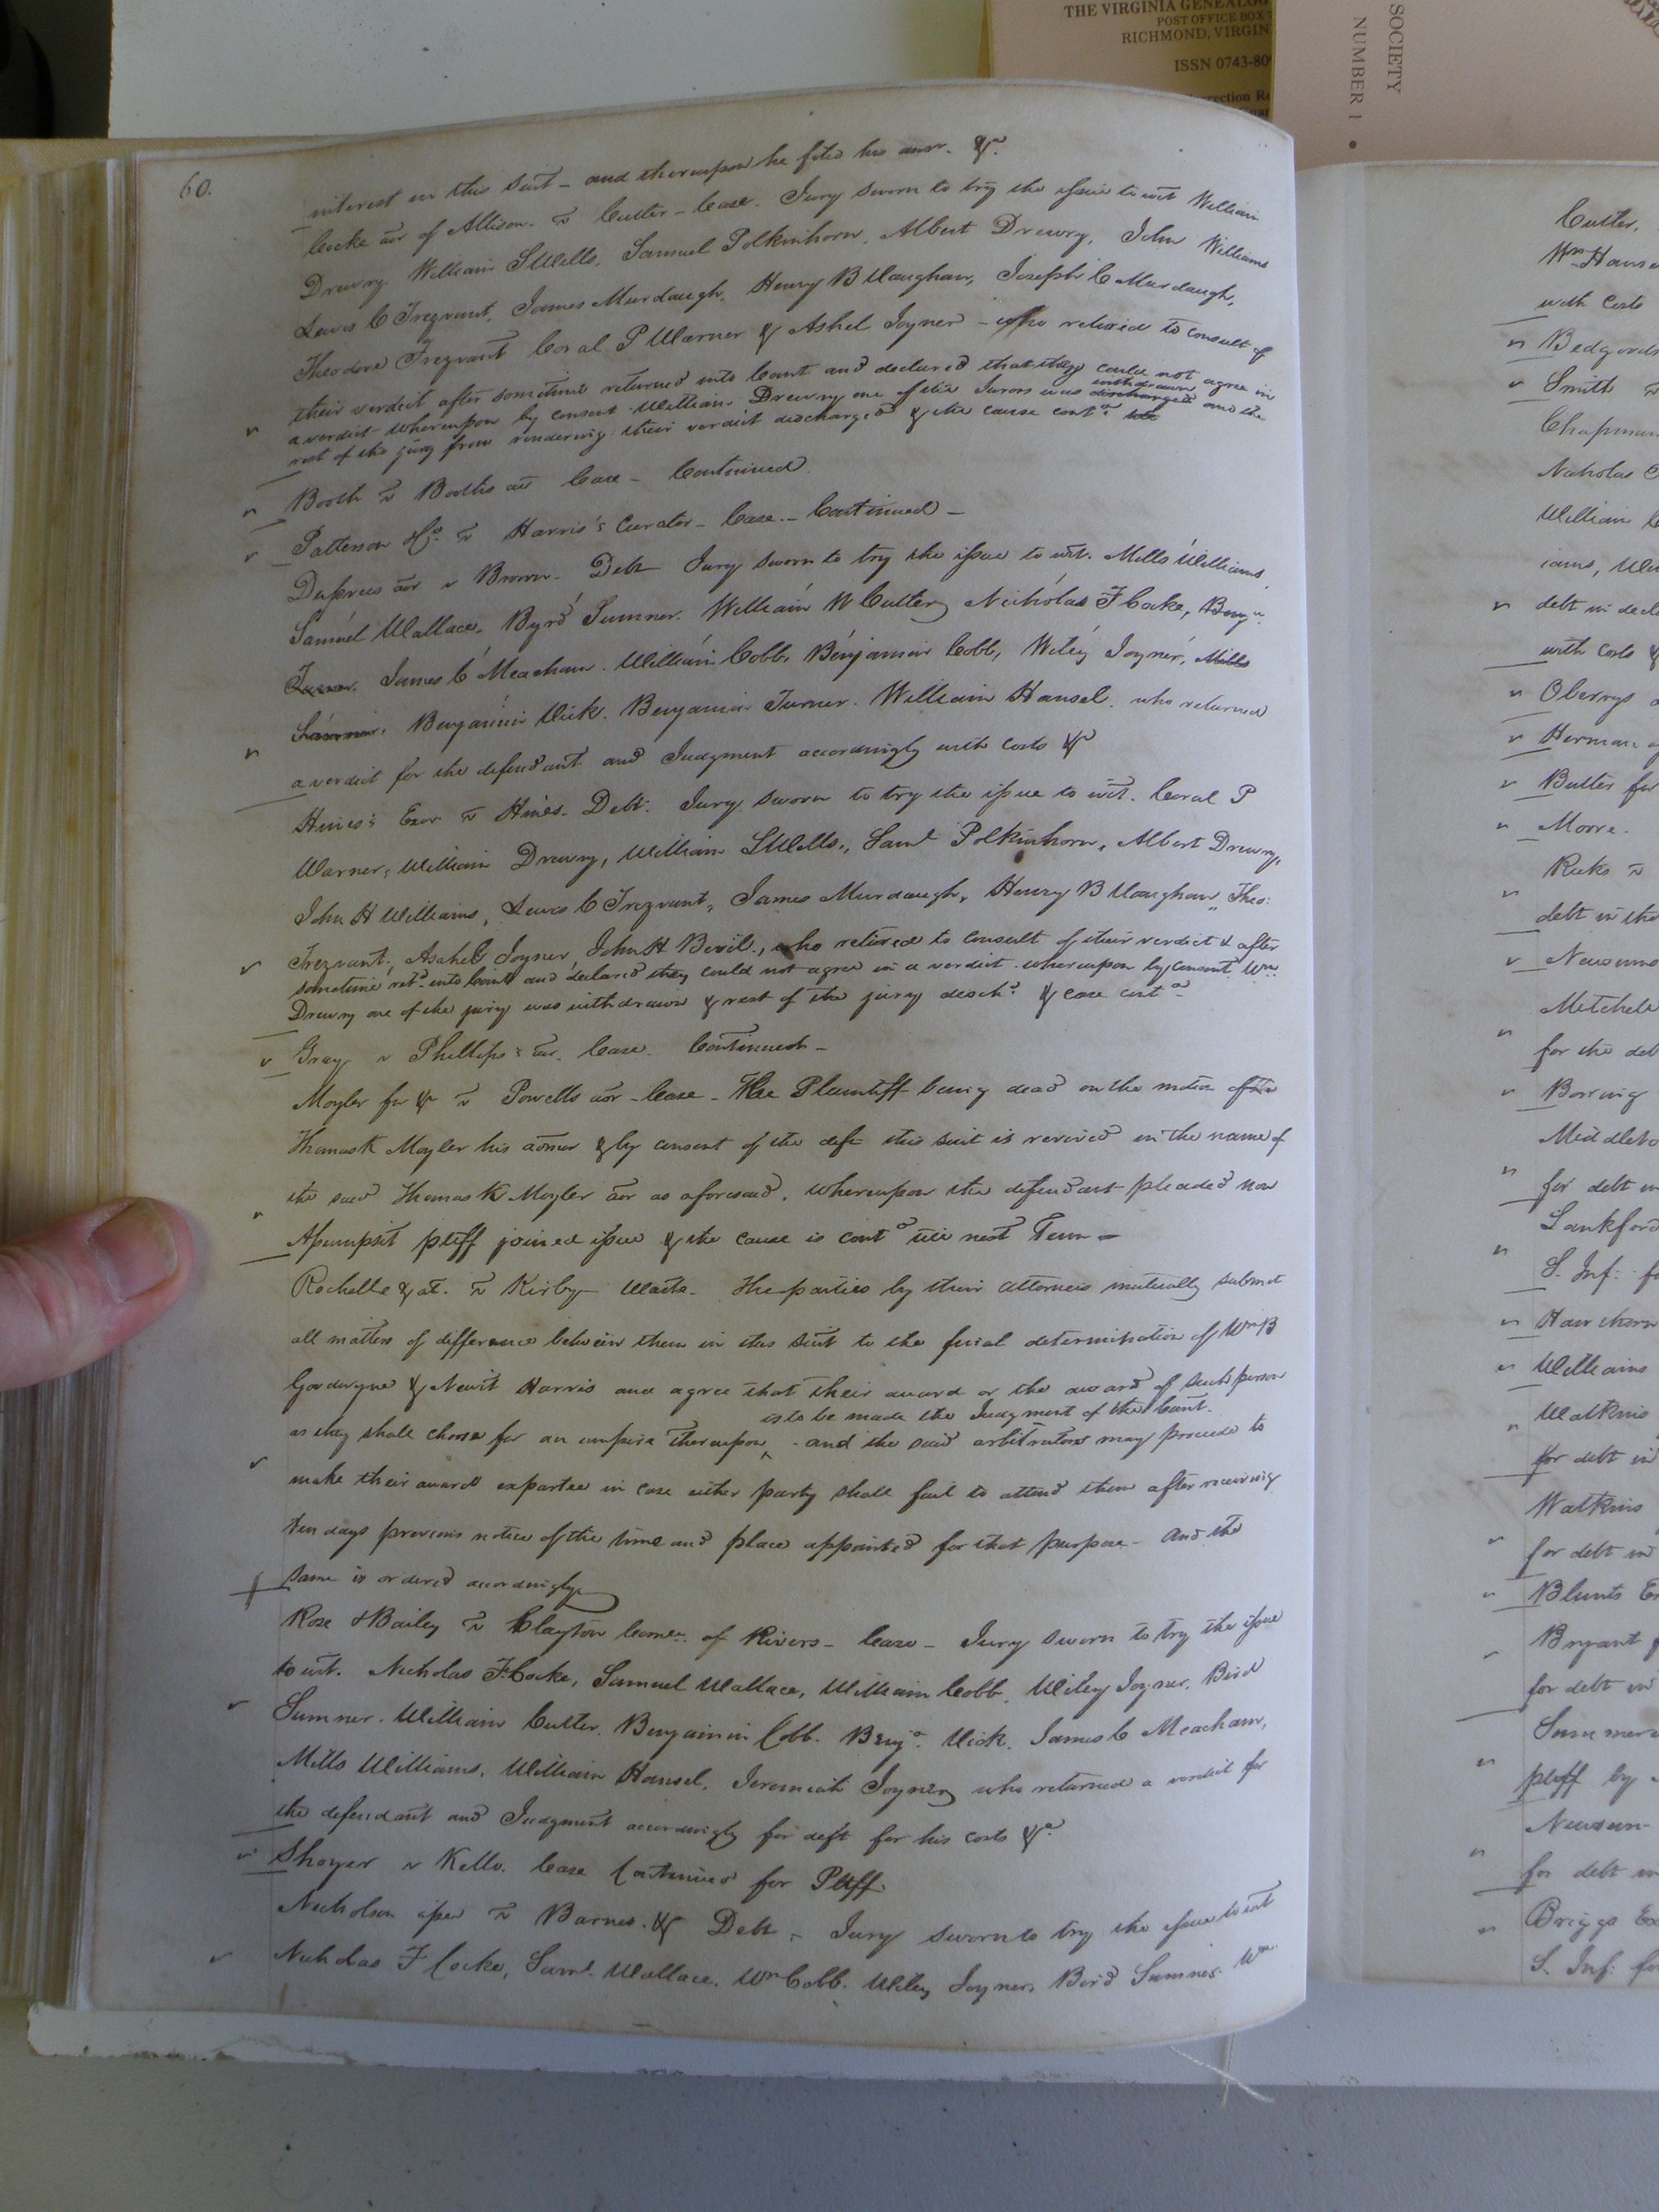 THE VIRGINIA GENEALOG
POST OFFICE BOX
RICHMOND, VIRGIN
ISSN 0743-80
rection Re
SOCIETY
NUMBER 1 •
60.
interest in this suit - and thereupon he filed his answ. &c.
Cocke aor of Allison. v Cutler - Case. Jury sworn to try the issue to wit William
Drewry William S Wells, Samuel Polkinhorn, Albert Drewry, John Williams
Lewis C Trezvant, James Murdaugh, Henry B Vaughan, Joseph C Murdaugh,
Theodore Trezvant Coral P Warner & Ashel Joyner - who retired to consult of
their verdict after sometime returned into Court and declared that they could not agree in
a verdict whereupon by consent William Drewry one of the Jurors was discharged withdrawn and the
rest of the jury from rendering their verdict discharged & the cause contd
Booth v Booths aor Case - Continued
Patterson &Co. v Harris's Curator - Case. - Continued -
Duprees aor v Brown. Debt Jury sworn to try the issue to wit. Mills Williams,
Samuel Wallace, Byrd Sumner. William W Cutler, Nicholas F Cocke, Benja.
Turner, James C Meacham. William Cobb, Benjamin Cobb, Wiley Joyner, Mills
Benjamin Vick. Benjamin Turner. William Hansel. who returned
a verdict for the defendant and Judgment accordingly with costs &c
Hines's Exor v Hines. Debt. Jury sworn to try the issue to wit. Coral P
Warner, William Drewry, William S Wells, Saml Polkinhorn, Albert Drewry,
John H Williams, Lewis C Trezvant, James Murdaugh, Henry B Vaughan, Theo:
Trezvant, Ashel Joyner, John H Bevil., who retired to consult of their verdict & after
sometime retd into Court and declared they could not agree in a verdict whereupon by consent Wm
Drewry one of the jury was withdrawn & rest of the jury disch.d & case contd
Gray v Phillips's aor. Case. Continued -
Moyler for &c v Powells aor - Case - The Plaintiff being dead on the motion of
Thomas K Moyler his admor & by consent of the deft this suit is revived in the name of
the said Thomas K Moyler aor as aforesaid. whereupon the defendant pleaded non
Assumpsit pltff joined issue & the cause is contd till next Term -
Rochelle & al. v Kirby - Waste. The parties by their attorneis mutually submit
all matters of difference between them in this suit to the final determination of Wm B
Goodwyne & Newit Harris and agree that their award or the award of such person
is to be made the Judgment of the Court.
as they shall choose for an umpire thereupon ^ - and the said arbitrators may proceed to
make their award expartee in case either party shall fail to attend them after receiving
ten days previous notice of the time and place appointed for that purpose - and the
same is ordered accordingly
Rose & Bailey v Clayton Comee. of Rivers - Case - Jury sworn to try the issue
to wit. Nicholas F. Cocke, Samuel Wallace, William Cobb, Wiley Joyner, Bird
Sumner. William Cutler. Benjamin Cobb. Benja. Vick. James C Meacham,
Mills Williams, William Hansel, Jeremiah Joyner, who returned a verdict for
the defendant and Judgment accordingly for deft for his costs &c
Shoyer v Kello. Case Continued for Pltff.
Nicholson v Barnes. &c Debt - Jury sworn to try the issue to wit
Nicholas F Cocke, Saml. Wallace. Wm Cobb. Wiley Joyner, Bird Sumner. Wm
Cutler.
Wm Hanse
with Costs
Bedgood
Smith v
Chapman
Nicholas C
William C
iams, Wil
debt in decl
with costs &
Oberrys
Herman
Butts for
Moore.
Ricks v
debt in the
Newsums
Mitchell
for the deb
Boering
Middleto
for debt in
Lankford
S. Inf: fo
Hawthorn
Williams
Watkins
for debt in
Watkins
for debt in
Blunts Ex
Bryant &
for debt in
Summer
pltff by
Newsum
for debt in
Briggs Ex
S. Inf: fo